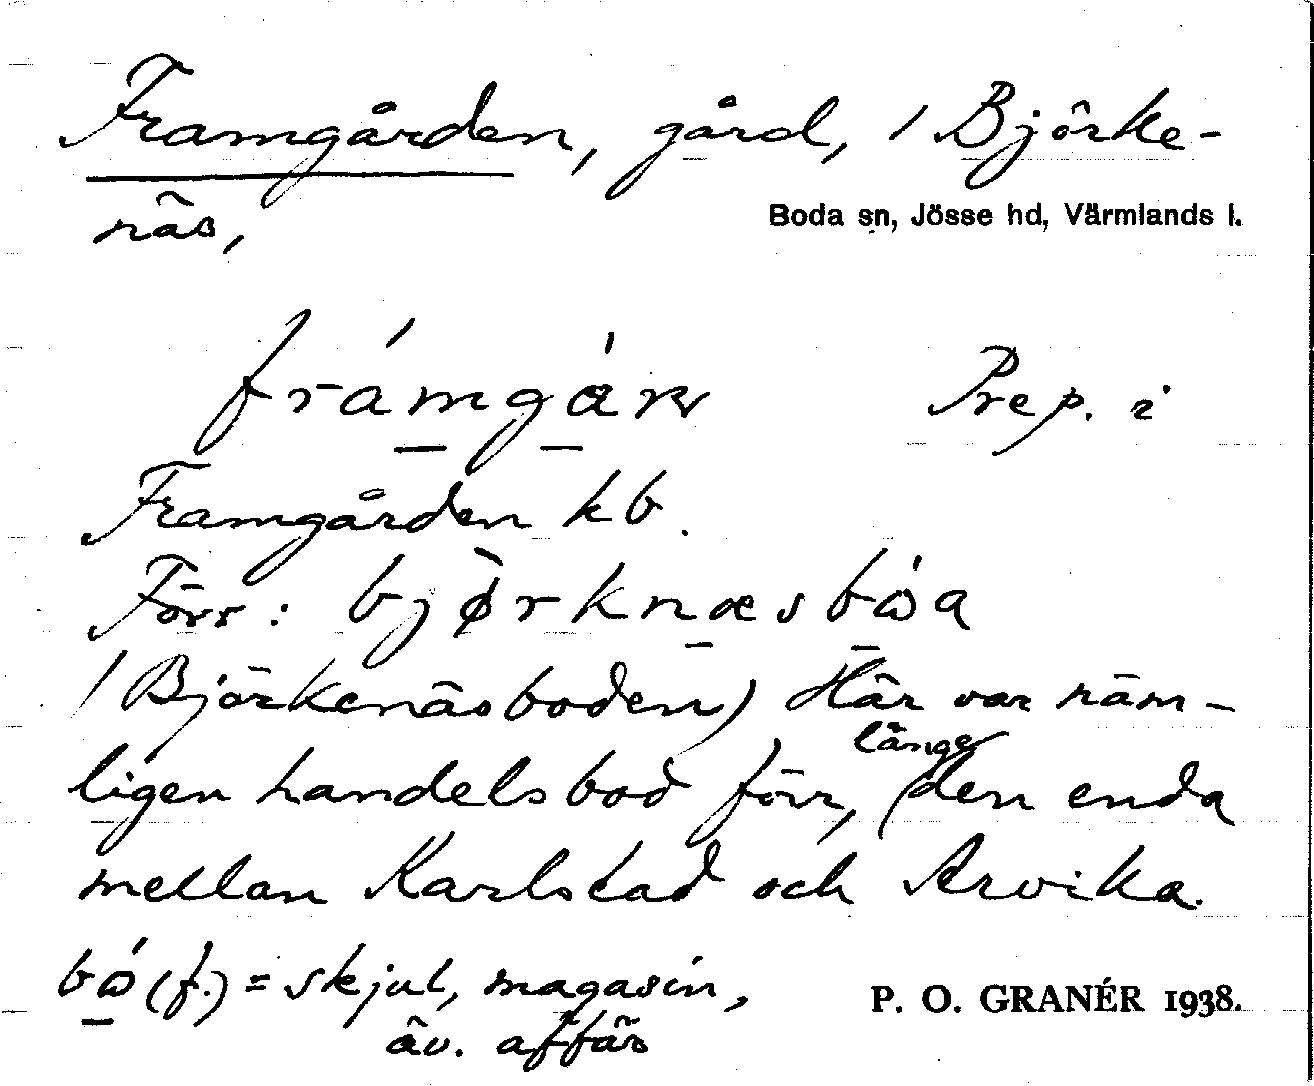 Framgården, gård, i Björke-
näs,
Boda sn, Jösse hd, Värmlands l.
Prep. i
Framgården kb.
Förr: bjørknæsbωa
(Björkenäsboden) Här var näm-
länge
ligen handelsbod förr, (den enda
mellan Karlstad och Arvika.
bω (f.) = skjul, magasin,
äv. affär
P. O. GRANÉR 1938.